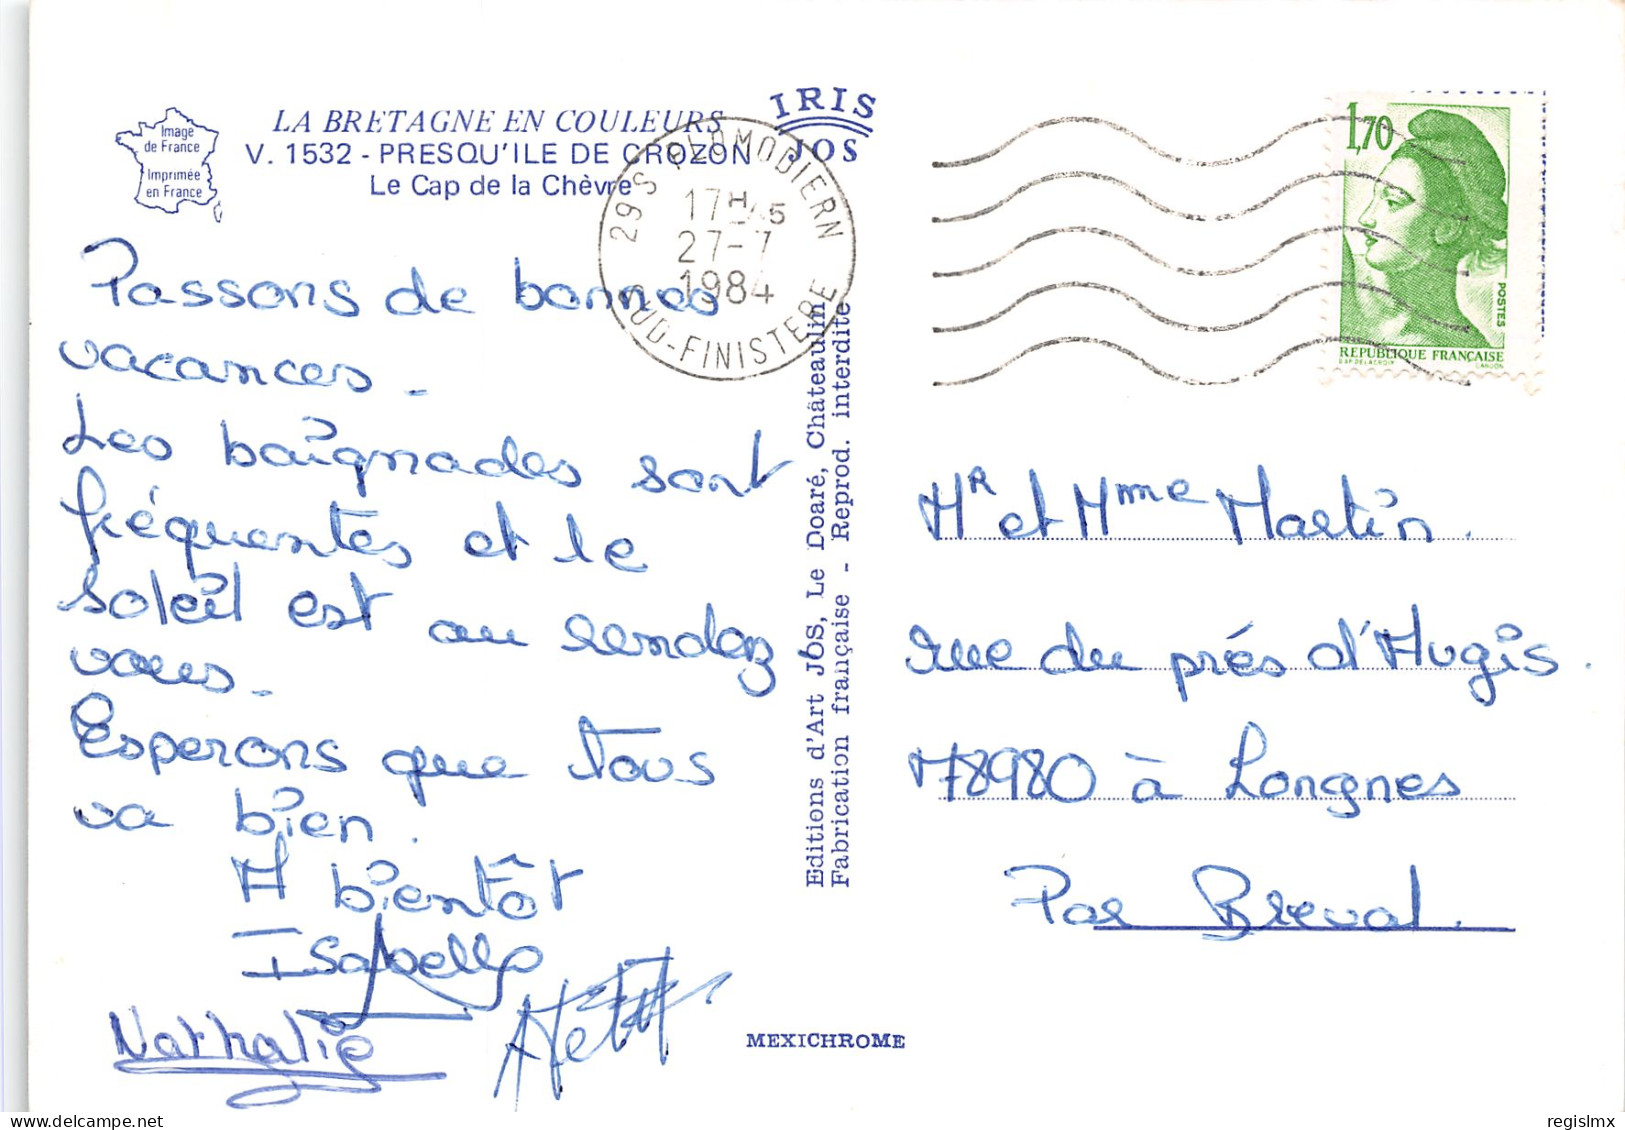 Image
de France
Imprimée
en France
LA BRETAGNE EN COULEURS
V. 1532 - PRESQU'ILE DE CROZON
Le Cap de la Chèvre
IRIS
JOS
29 S PLOMODIERN
17H 45
27-7
1984
SUD-FINISTERE
1,70
POSTES
REPUBLIQUE FRANÇAISE
Passons de bonnes
vacances.
Les baignades sont
fréquentes et le
soleil est au rendez
vous.
Esperons que tous
va bien.
A bientôt
Isabelle
Nathalie
Editions d'Art JOS, Le Doaré, Châteaulin
Fabrication française - Reprod. interdite
Mr et Mme Martin.
rue du prés d'Augis.
78980 à Longnes
Par Breval.
MEXICHROME
Postcards for sale on Delcampe
regislmx